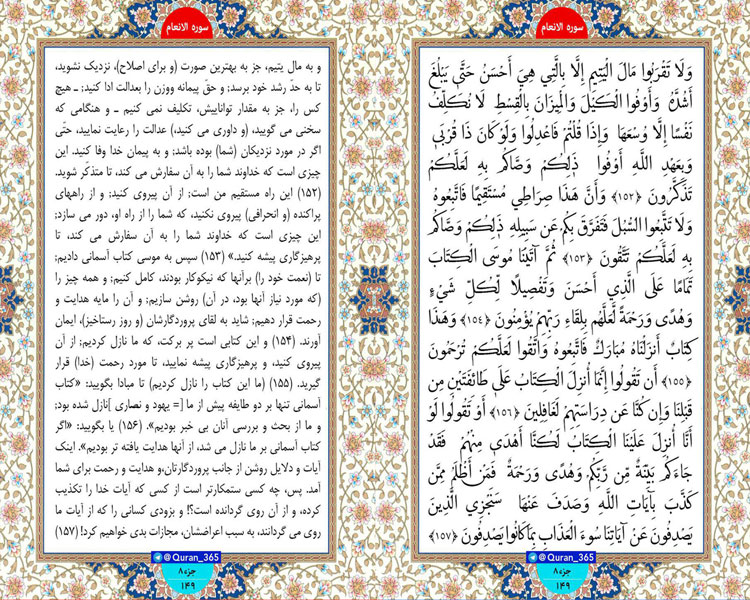 سوره الانعام
وَلَا تَقْرَبُوا مَالَ الْيَتِيمِ إِلَّا بِالَّتِي هِيَ أَحْسَنُ حَتَّىٰ يَبْلُغَ
أَشُدَّهُ وَأَوْفُوا الْكَيْلَ وَالْمِيزَانَ بِالْقِسْطِ لَا نُكَلِّفُ
نَفْسًا إِلَّا وُسْعَهَا وَإِذَا قُلْتُمْ فَاعْدِلُوا وَلَوْ كَانَ ذَا قُرْبَىٰ
وَبِعَهْدِ اللَّهِ أَوْفُوا ذَٰلِكُمْ وَصَّاكُم بِهِ لَعَلَّكُمْ
تَذَكَّرُونَ ﴿۱۵۲﴾ وَأَنَّ هَٰذَا صِرَاطِي مُسْتَقِيمًا فَاتَّبِعُوهُ
وَلَا تَتَّبِعُوا السُّبُلَ فَتَفَرَّقَ بِكُمْ عَن سَبِيلِهِ ذَٰلِكُمْ وَصَّاكُم
بِهِ لَعَلَّكُمْ تَتَّقُونَ ﴿۱۵۳﴾ ثُمَّ آتَيْنَا مُوسَى الْكِتَابَ
تَمَامًا عَلَى الَّذِي أَحْسَنَ وَتَفْصِيلًا لِّكُلِّ شَيْءٍ
وَهُدًى وَرَحْمَةً لَّعَلَّهُم بِلِقَاءِ رَبِّهِمْ يُؤْمِنُونَ ﴿۱۵۴﴾ وَهَٰذَا
كِتَابٌ أَنزَلْنَاهُ مُبَارَكٌ فَاتَّبِعُوهُ وَاتَّقُوا لَعَلَّكُمْ تُرْحَمُونَ
﴿۱۵۵﴾ أَن تَقُولُوا إِنَّمَا أُنزِلَ الْكِتَابُ عَلَىٰ طَائِفَتَيْنِ مِن
قَبْلِنَا وَإِن كُنَّا عَن دِرَاسَتِهِمْ لَغَافِلِينَ ﴿۱۵۶﴾ أَوْ تَقُولُوا لَوْ
أَنَّا أُنزِلَ عَلَيْنَا الْكِتَابُ لَكُنَّا أَهْدَىٰ مِنْهُمْ فَقَدْ
جَاءَكُم بَيِّنَةٌ مِّن رَّبِّكُمْ وَهُدًى وَرَحْمَةٌ فَمَنْ أَظْلَمُ مِمَّن
كَذَّبَ بِآيَاتِ اللَّهِ وَصَدَفَ عَنْهَا سَنَجْزِي الَّذِينَ
يَصْدِفُونَ عَنْ آيَاتِنَا سُوءَ الْعَذَابِ بِمَا كَانُوا يَصْدِفُونَ ﴿۱۵۷﴾
@Quran_365
جزء ۸
۱۴۹
سوره الانعام
و به مال یتیم، جز به بهترین صورت (و برای اصلاح)، نزدیک نشوید،
تا به حدّ رشد خود برسد؛ و حقّ پیمانه ووزن را بعدالت ادا کنید؛ ـ هیچ
کس را، جز به مقدار تواناییش، تکلیف نمی کنیم ـ و هنگامی که
سخنی می گویید، (و داوری می کنید)، عدالت را رعایت نمایید، حتّی
اگر در مورد نزدیکان (شما) بوده باشد؛ و به پیمان خدا وفا کنید. این
چیزی است که خداوند شما را به آن سفارش می کند، تا متذکّر شوید.
(۱۵۲) این راه مستقیم من است؛ از آن پیروی کنید؛ و از راههای
پراکنده (و انحرافی) پیروی نکنید، که شما را از راه او، دور می سازد؛
این چیزی است که خداوند شما را به آن سفارش می کند، تا
پرهیزگاری پیشه کنید.» (۱۵۳) سپس به موسی کتاب آسمانی دادیم؛
تا (نعمت خود را) برآنها که نیکوکار بودند، کامل کنیم؛ و همه چیز را
(که مورد نیاز آنها بود، در آن) روشن سازیم؛ و آن را مایه هدایت و
رحمت قرار دهیم؛ شاید به لقای پروردگارشان (و روز رستاخیز)، ایمان
آورند. (۱۵۴) و این کتابی است پر برکت، که ما نازل کردیم؛ از آن
پیروی کنید، و پرهیزگاری پیشه نمایید، تا مورد رحمت (خدا) قرار
گیرید. (۱۵۵) (ما این کتاب را نازل کردیم) تا مبادا بگویید: «کتاب
آسمانی تنها بر دو طایفه پیش از ما [= یهود و نصاری ]نازل شده بود؛
و ما از بحث و بررسی آنان بی خبر بودیم». (۱۵۶) یا بگویید: «اگر
کتاب آسمانی بر ما نازل می شد، از آنها هدایت یافته تر بودیم». اینک
آیات و دلایل روشن از جانب پروردگارتان،و هدایت و رحمت برای شما
آمد. پس، چه کسی ستمکارتر است از کسی که آیات خدا را تکذیب
کرده، و از آن روی گردانده است؟! و بزودی کسانی را که از آیات ما
روی می گردانند، به سبب اعراضشان، مجازات بدی خواهیم کرد! (۱۵۷)
@Quran_365
جزء ۸
۱۴۹